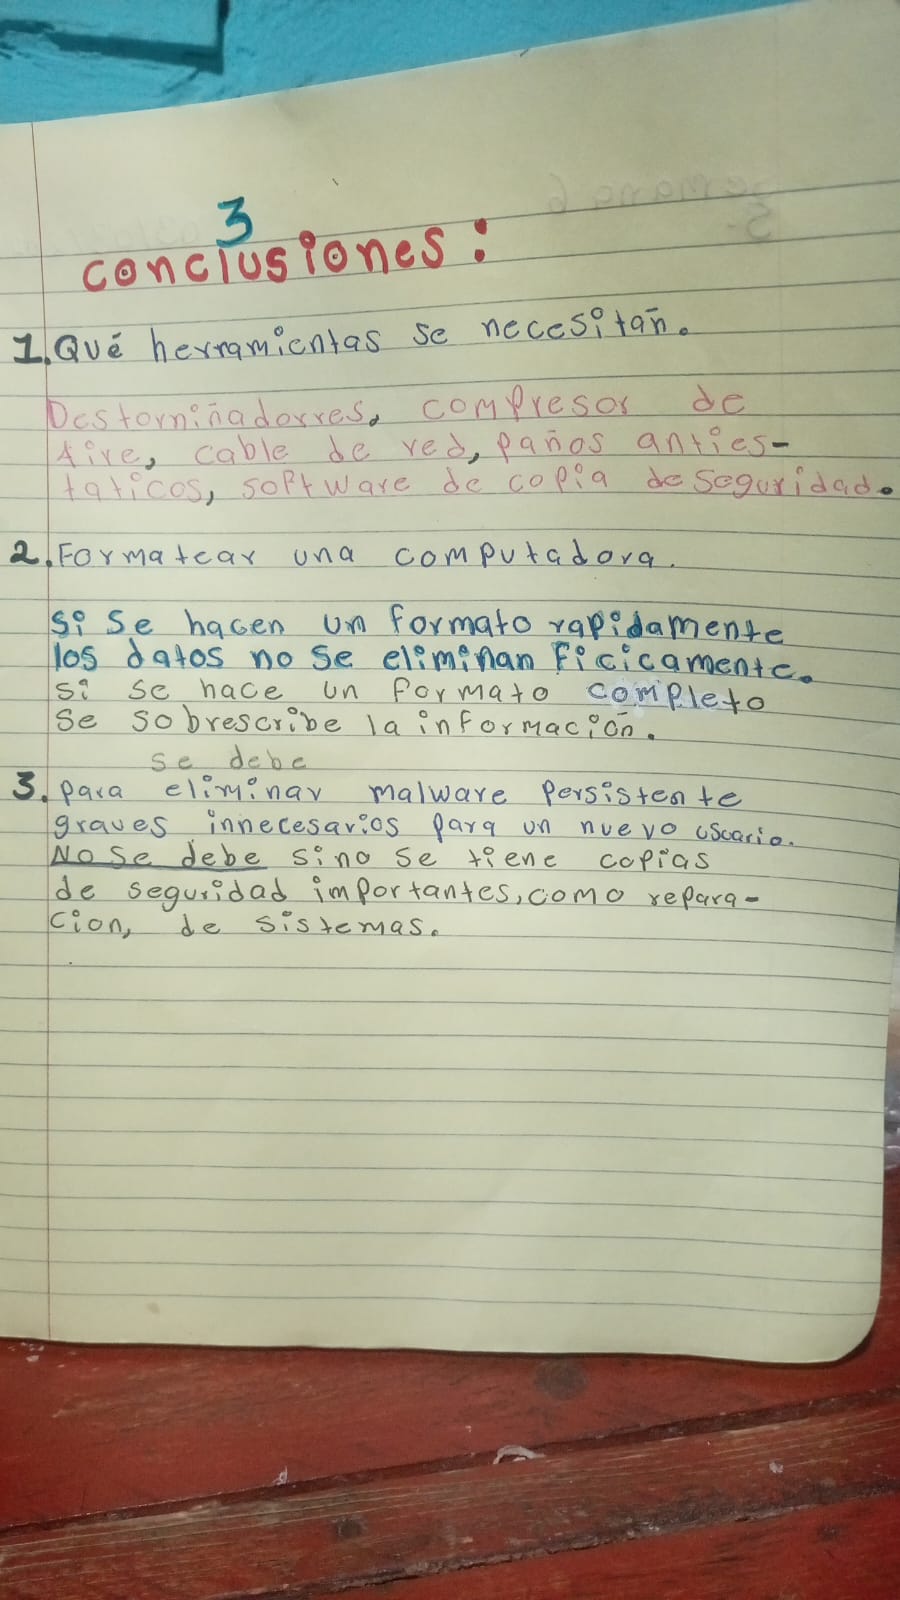 3
conclusiones:
1. Qué herramientas se necesitan.
Destorniñadorres, compresor de
Aire, cable de red, paños anties-
taticos, software de copia de seguridad.
2. Formatear una computadora.
Si se hacen un formato rapidamente
los datos no se eliminan ficicamente.
si se hace un formato completo
se sobrescribe la información.
se debe
3. para eliminar malware persistente
graves innecesarios para un nuevo usuario.
No se debe sino se tiene copias
de seguridad importantes, como repara-
cion, de sistemas.